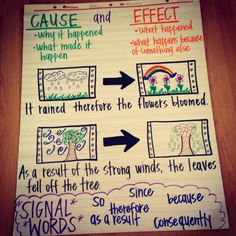 CAUSE and EFFECT
• Why it happened
• what made it happen
• what happened
• what happens because of something else
It rained therefore the flowers bloomed.
As a result of the strong winds, the leaves
fell off the tree.
SIGNAL WORDS
so
Since
because
therefore
as a result
Consequently